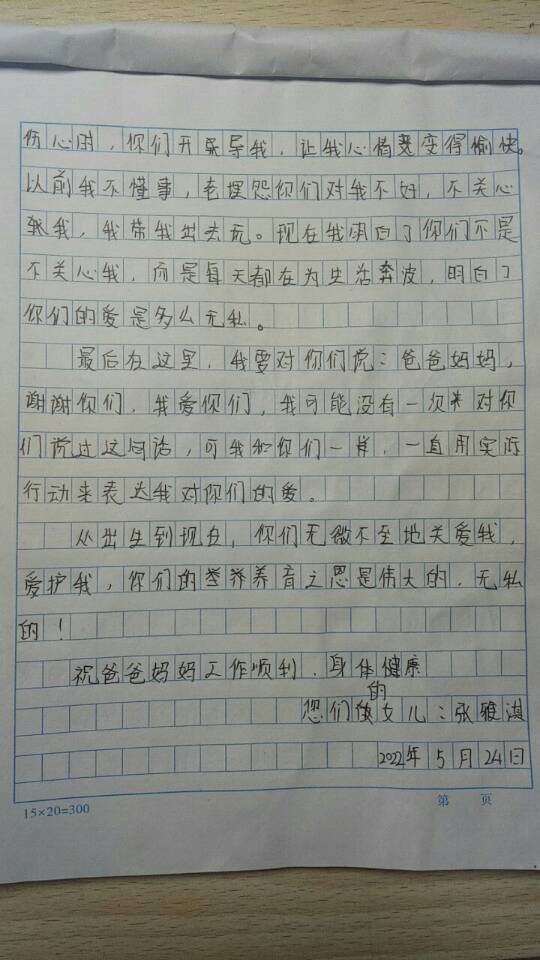 伤心时，你们开导我，让我心情变得愉快。
以前我不懂事，老埋怨你们对我不好，不关心
我，我带我出去玩。现在我明白了你们不是
不关心我，而是每天都在为生活奔波，明白了
你们的爱是多么无私。
最后在这里，我要对你们说：爸爸妈妈，
谢谢你们，我爱你们，我可能没有一次对你
们说过这句话，可我和你们一样，一直用实际
行动来表达我对你们的爱。
从出生到现在，你们无微不至地关爱我，
爱护我，你们的养育之恩是伟大的，无私
的！
祝爸爸妈妈工作顺利，身体健康
您们的女儿：张雅淇
2022年5月24日
15×20=300
第 页